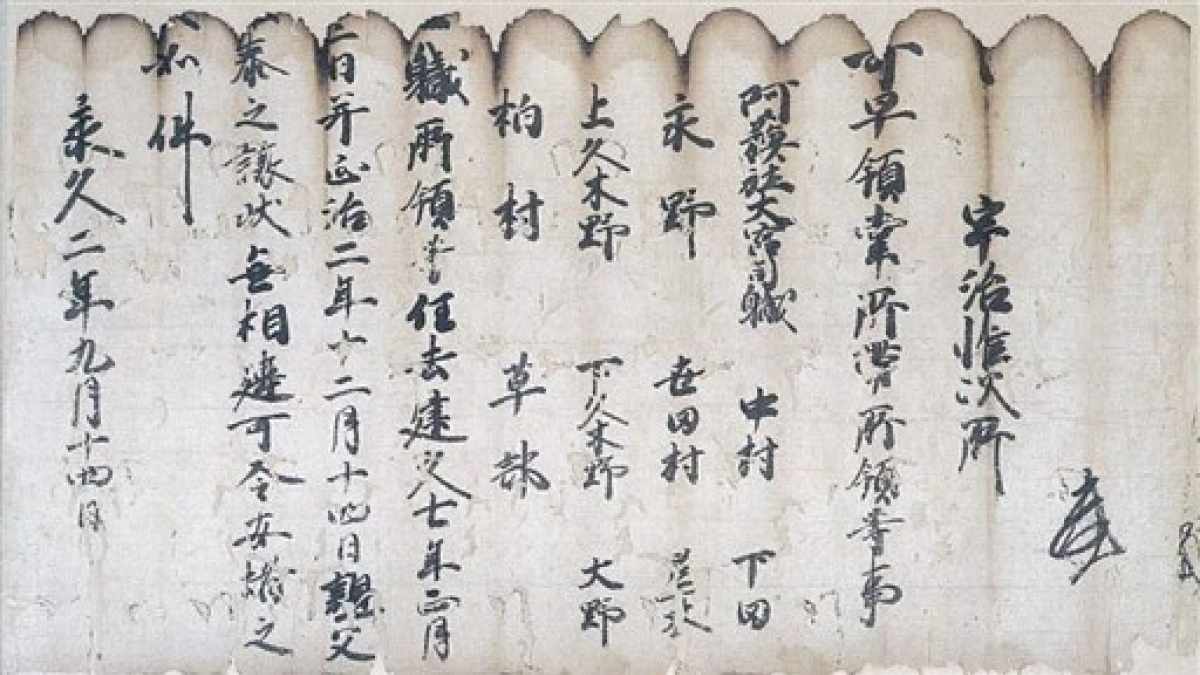 宇治惟次所
可早領掌所帯所領等事
阿蘇社大宮司職 中村 下田
永野 世田村
上久木野 下久木野 大野
柏村 草部
職所領等任去建久七年正月
二日并正治二年十二月十四日親父
泰之譲状無相違可令安堵之
如件
承久二年九月十四日